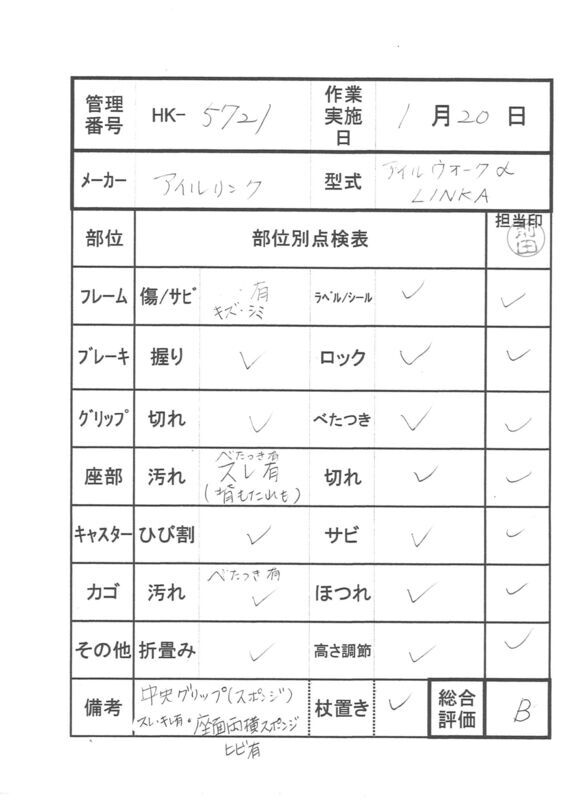 管理番号 HK- 5721 作業実施日 1月20日
メーカー アイルリンク 型式 アイルウォークα LINKA
部位 部位別点検表 担当印 前田
フレーム 傷/サビ 有 キズ・シミ ラベル/シール ✓ ✓
ブレーキ 握り ✓ ロック ✓ ✓
グリップ 切れ ✓ べたつき ✓ ✓
座部 汚れ べたつき有 スレ有 (背もたれも) 切れ ✓ ✓
キャスター ひび割 ✓ サビ ✓ ✓
カゴ 汚れ べたつき有 ✓ ほつれ ✓ ✓
その他 折畳み ✓ 高さ調節 ✓ ✓
備考 中央グリップ(スポンジ) 杖置き ✓ 総合評価 B
スレ・キレ有・座面両横スポンジ
ヒビ有